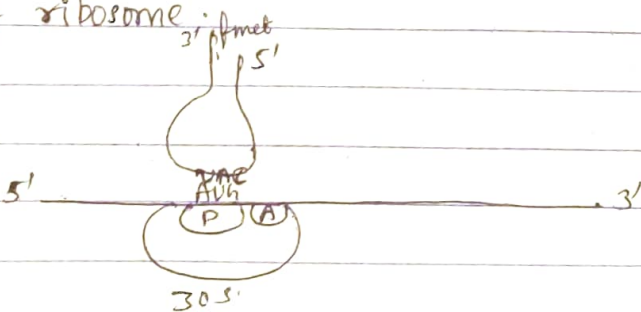 ribosome.
3' fmet
5'
UAC
AUG
5' 3'
P A
30S.